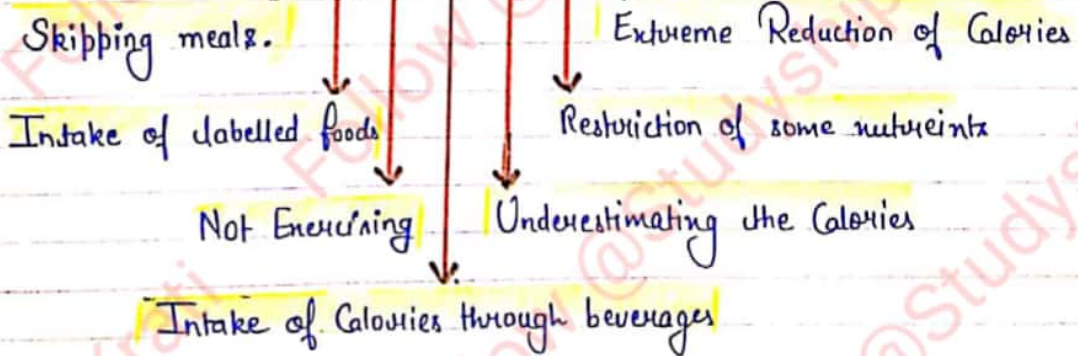 Skipping meals.
Extreme Reduction of Calories
Intake of labelled foods
Restriction of some nutreints
Not Exercising
Underestimating the Calories
Intake of Calouries through beverages
Follow @Studyship
@Studys